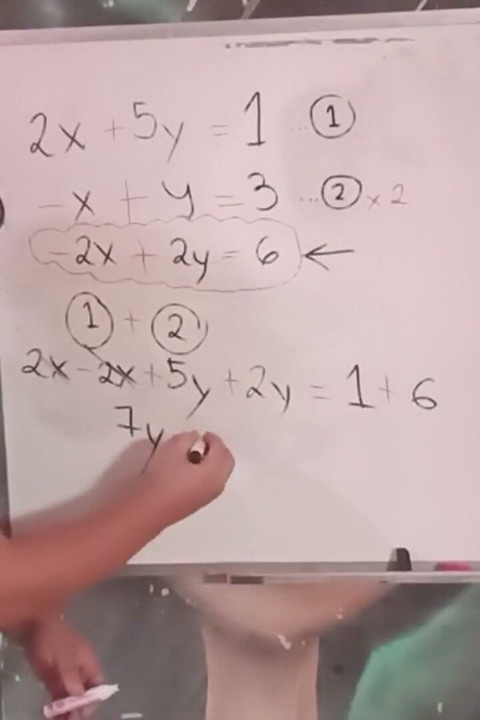 2x + 5y = 1 ... ①
-x + y = 3 ... ② x 2
-2x + 2y = 6 ←
① + ②
2x - 2x + 5y + 2y = 1 + 6
7y